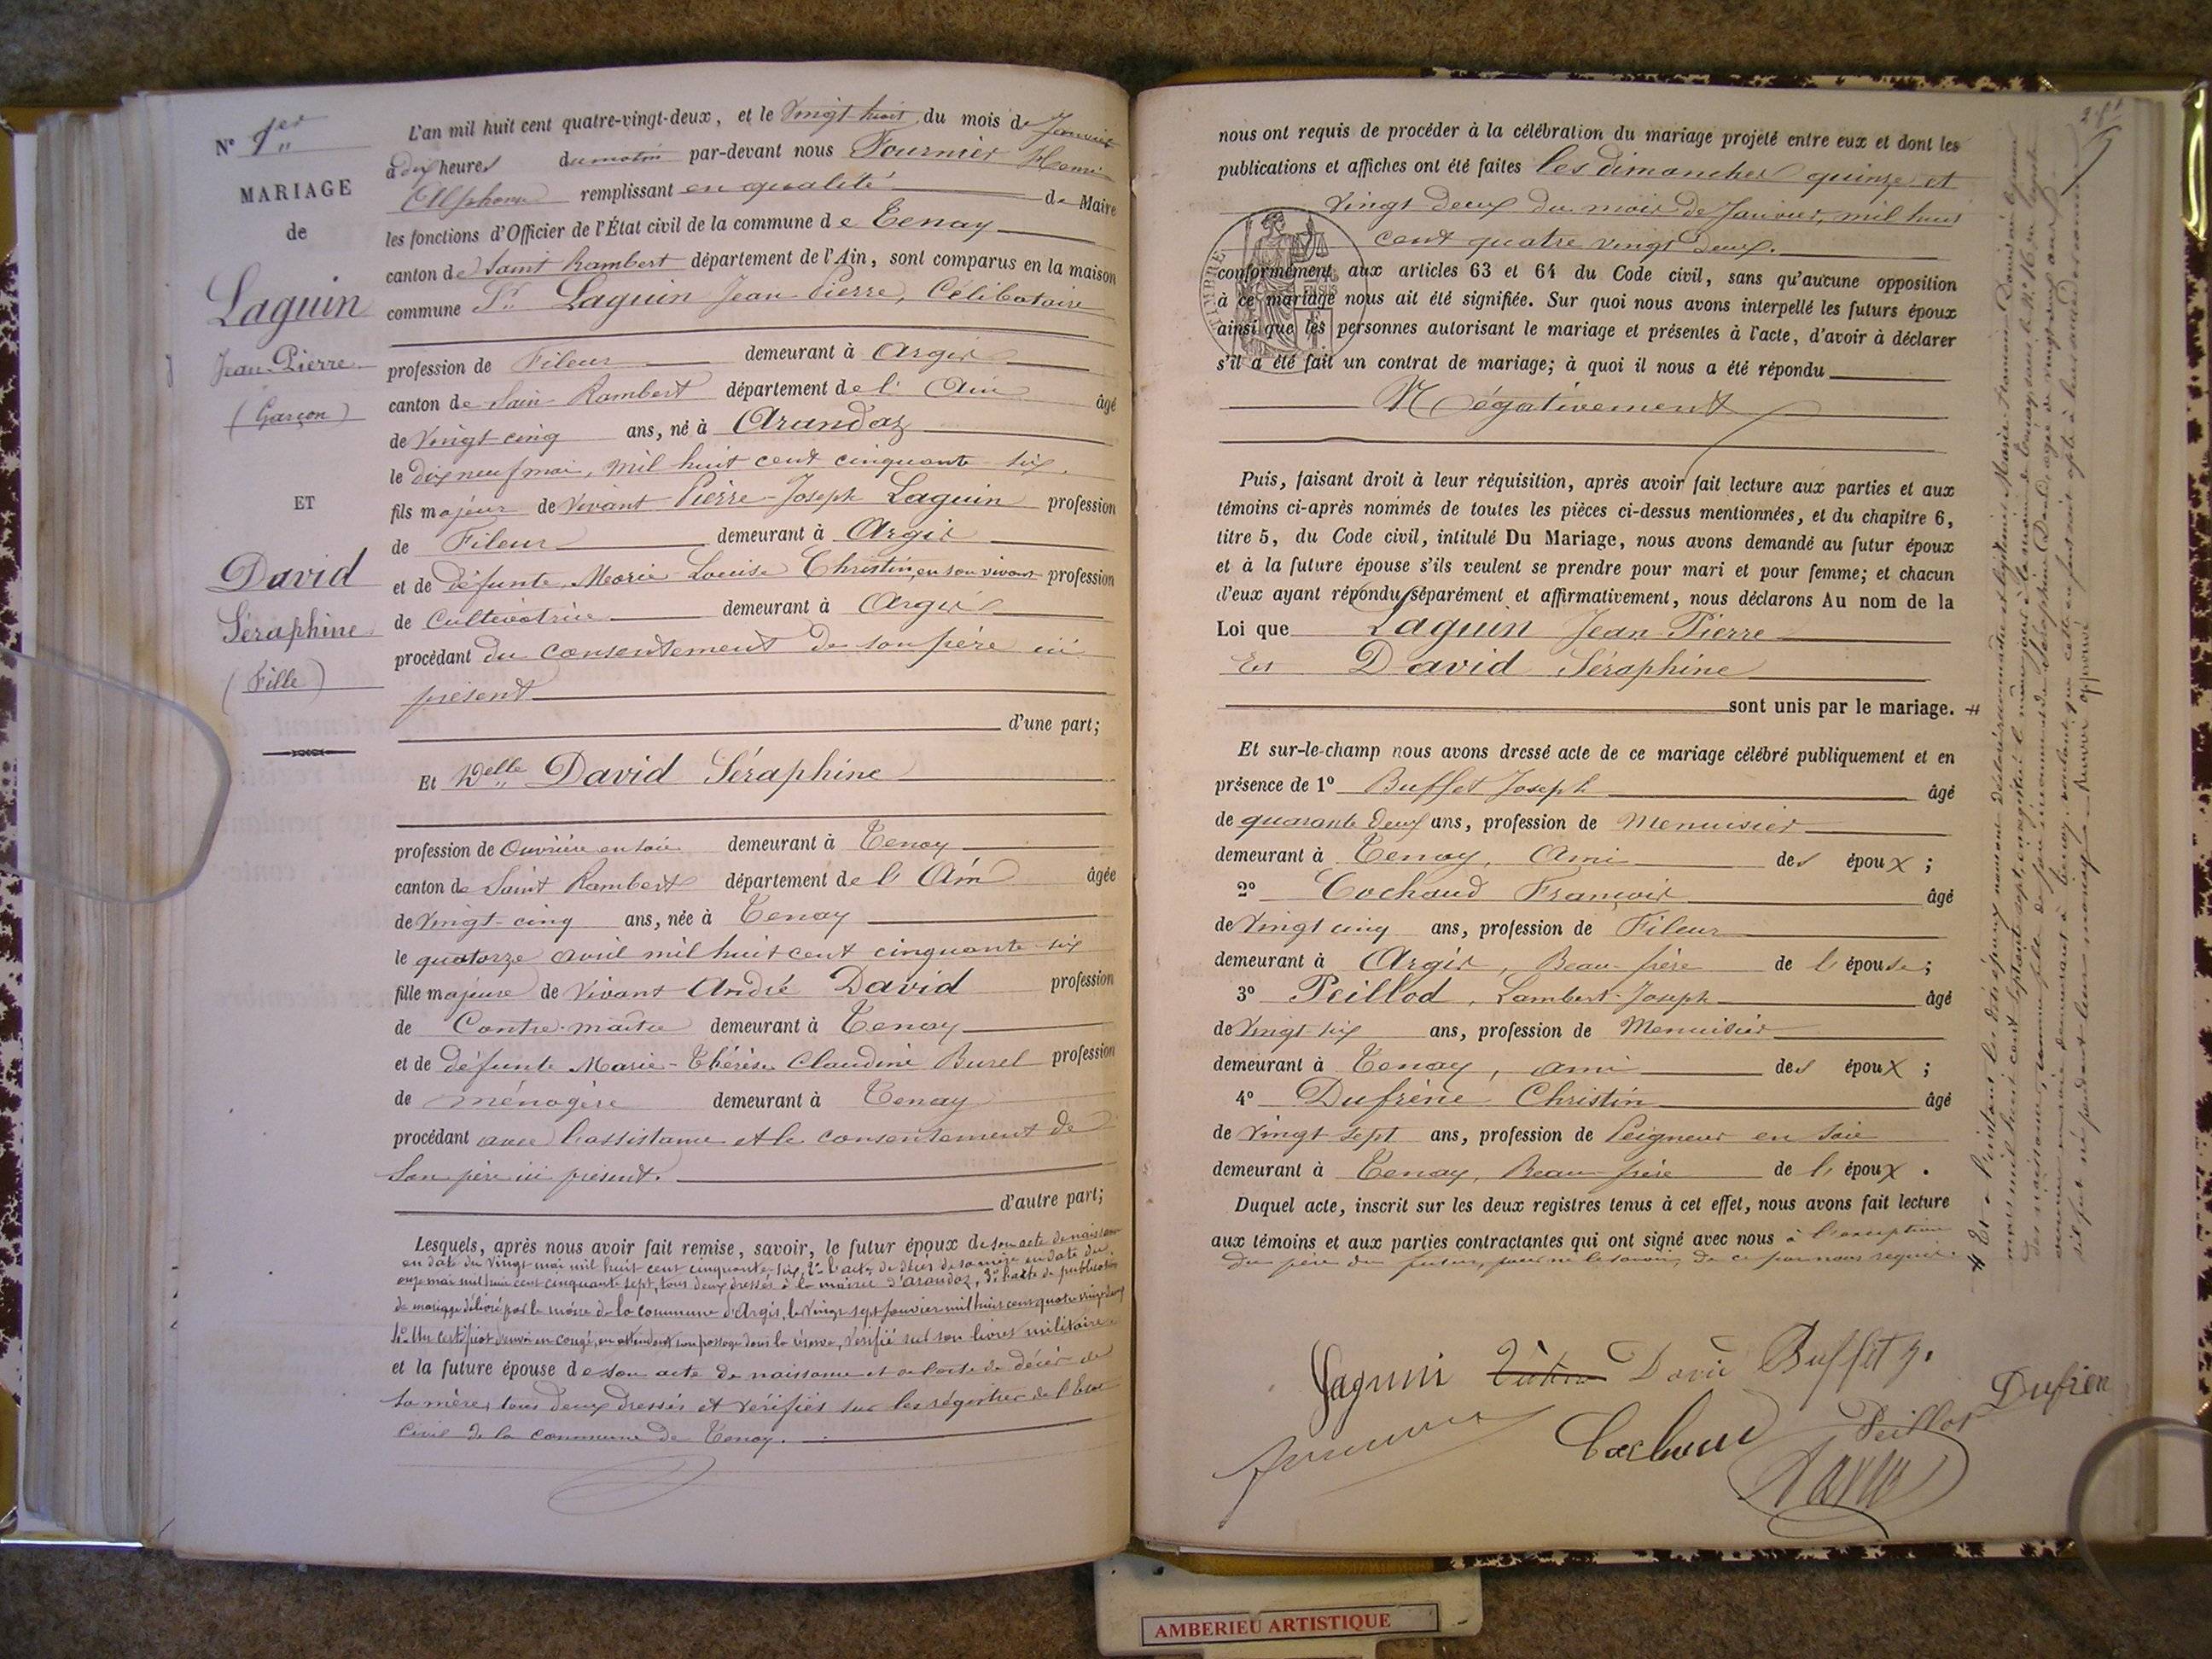 N° 1er
MARIAGE
de
Laguin
Jean-Pierre
(Garçon)
ET
David
Séraphine
(Fille)
L'an mil huit cent quatre-vingt-deux, et le Vingt-huit du mois de Janvier
à dix heures du matin par-devant nous Fournier Henri
Alphonse remplissant en qualité de Maire
les fonctions d'Officier de l'État civil de la commune de Tenay
canton de Saint Rambert département de l'Ain, sont comparus en la maison
commune Sr Laguin Jean Pierre, Célibataire
profession de Fileur demeurant à Argis
canton de Sain Rambert département de l'Ain âgé
de Vingt-cinq ans, né à Arandaz
le dix neuf mai, mil huit cent cinquante six,
fils majeur de Vivant Pierre-Joseph Laguin profession
de Fileur demeurant à Argis
et de défunte Marie Louise Christin, en son vivant profession
de Cultivatrice demeurant à Argis
procédant du consentement de son père ici
présent
d'une part;
Et Delle David Séraphine
profession de Ouvrière en soie demeurant à Tenay
canton de Saint Rambert département de l'Ain âgée
de Vingt-cinq ans, née à Tenay
le quatorze avril mil huit cent cinquante six
fille majeure de Vivant André David profession
de Contre-maître demeurant à Tenay
et de défunte Marie-Thérèse Claudine Burel profession
de ménagère demeurant à Tenay
procédant avec l'assistance et le consentement de
son père ici présent.
d'autre part;
Lesquels, après nous avoir fait remise, savoir, le futur époux de son acte de naissance
en date du Vingt mai mil huit cent cinquante-six, 2° l'acte de décès de sa mère en date du
onze mai mil huit cent cinquante sept, tous deux dressés à la mairie d'Arandaz, 3° l'acte de publication
de mariage délivré par le maire de la commune d'Argis, le Vingt sept Janvier mil huit cent quatre vingt deux
4° Un certificat d'envoi en congé, en attendant son passage dans la réserve, vérifié sur son livret militaire.
et la future épouse de son acte de naissance et de l'acte de décès de
sa mère, tous deux dressés et vérifiés sur les régistres de l'État
Civil de la commune de Tenay.
nous ont requis de procéder à la célébration du mariage projeté entre eux et dont les
publications et affiches ont été faites les dimanches quinze et
Vingt deux du mois de Janvier, mil huit
cent quatre vingt deux.
conformément aux articles 63 et 64 du Code civil, sans qu'aucune opposition
à ce mariage nous ait été signifiée. Sur quoi nous avons interpellé les futurs époux
ainsi que les personnes autorisant le mariage et présentes à l'acte, d'avoir à déclarer
s'il a été fait un contrat de mariage; à quoi il nous a été répondu
Négativement
Puis, faisant droit à leur réquisition, après avoir fait lecture aux parties et aux
témoins ci-après nommés de toutes les pièces ci-dessus mentionnées, et du chapitre 6,
titre 5, du Code civil, intitulé Du Mariage, nous avons demandé au futur époux
et à la future épouse s'ils veulent se prendre pour mari et pour femme; et chacun
d'eux ayant répondu séparément et affirmativement, nous déclarons Au nom de la
Loi que Laguin Jean Pierre
Et David Séraphine
sont unis par le mariage. #
Et sur-le-champ nous avons dressé acte de ce mariage célébré publiquement et en
présence de 1° Buffet Joseph âgé
de quarante deux ans, profession de Menuisier
demeurant à Tenay, Ami des époux;
2° Cochaud François âgé
de Vingt cinq ans, profession de Fileur
demeurant à Argis, Beau-frère de l'épouse;
3° Peillod, Lambert-Joseph âgé
de Vingt six ans, profession de Menuisier
demeurant à Tenay, ami des époux;
4° Dufrène Christin âgé
de Vingt sept ans, profession de Peigneur en soie
demeurant à Tenay, Beau-frère de l'époux.
Duquel acte, inscrit sur les deux registres tenus à cet effet, nous avons fait lecture
aux témoins et aux parties contractantes qui ont signé avec nous à l'exception
du père du futur, pour ne le savoir, de ce par nous requis.
Laguin David Buffet J.
Dufren
Cochaud Peillot
David
AMBERIEU ARTISTIQUE